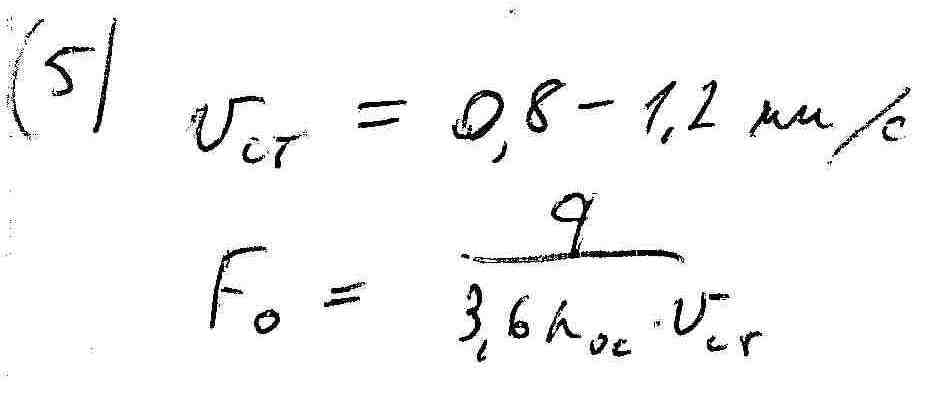 (5)
υст = 0,8 – 1,2 мм/с
Fo = q / 3,6 hос · υст